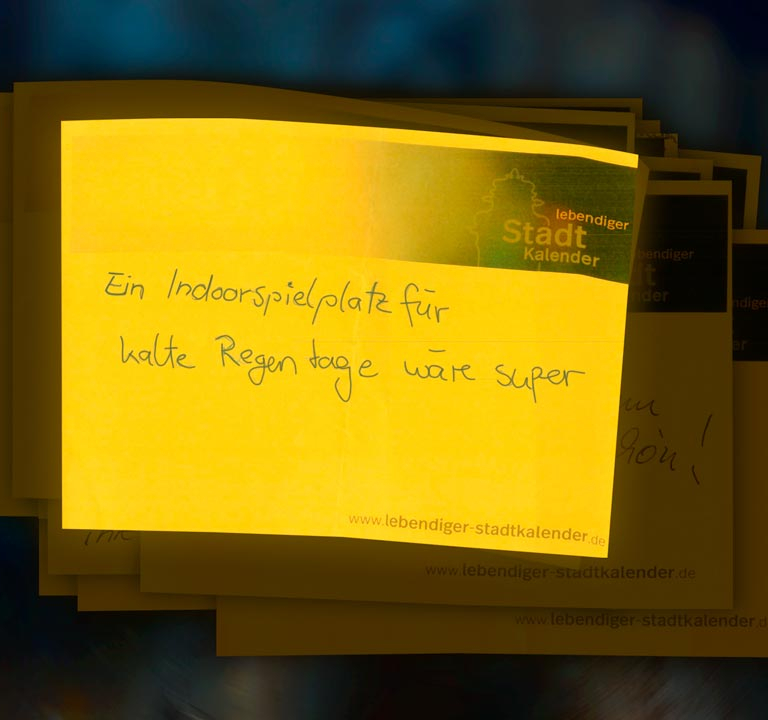 lebendiger
Stadt
Kalender
Ein Indoorspielplatz für
kalte Regentage wäre super
www.lebendiger-stadtkalender.de
lebendiger
www.lebendiger-stadtkalender.de
www.lebendiger-stadtkalender.d